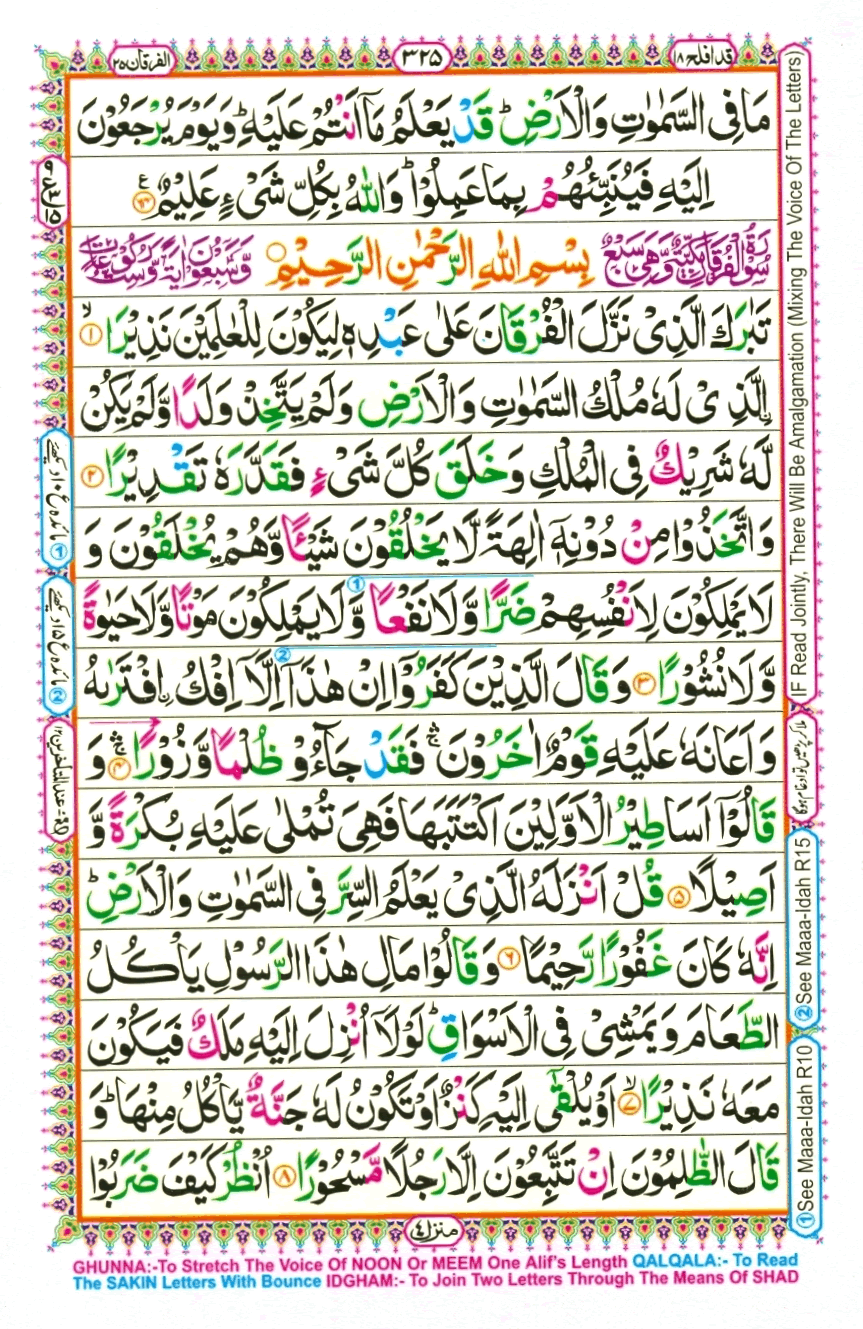 قد افلح ۱۸
۳۲۵
الفرقان ۲۵
مَا فِی السَّمٰوٰتِ وَالْاَرْضِ ؕ قَدْ یَعْلَمُ مَاۤ اَنْتُمْ عَلَیْهِ ؕ وَیَوْمَ یُرْجَعُوْنَ
اِلَیْهِ فَیُنَبِّئُهُمْ بِمَا عَمِلُوْا ؕ وَاللّٰهُ بِكُلِّ شَیْءٍ عَلِیْمٌ ﴿۶۴﴾ ع
سُوْرَةُ الْفُرْقَانِ مَكِّیَّةٌ وَّهِیَ سَبْعٌ
بِسْمِ اللّٰهِ الرَّحْمٰنِ الرَّحِیْمِ
وَّسَبْعُوْنَ اٰیَةً وَّسِتُّ رُكُوْعَاتٍ
تَبٰرَكَ الَّذِیْ نَزَّلَ الْفُرْقَانَ عَلٰی عَبْدِهٖ لِیَكُوْنَ لِلْعٰلَمِیْنَ نَذِیْرَا ۙ﴿۱﴾
اِ۟لَّذِیْ لَهٗ مُلْكُ السَّمٰوٰتِ وَالْاَرْضِ وَلَمْ یَتَّخِذْ وَلَدًا وَّلَمْ یَكُنْ
لَّهٗ شَرِیْكٌ فِی الْمُلْكِ وَخَلَقَ كُلَّ شَیْءٍ فَقَدَّرَهٗ تَقْدِیْرًا ﴿۲﴾
وَاتَّخَذُوْا مِنْ دُوْنِهٖۤ اٰلِهَةً لَّا یَخْلُقُوْنَ شَیْئًا وَّهُمْ یُخْلَقُوْنَ وَ
لَا یَمْلِكُوْنَ لِاَنْفُسِهِمْ ضَرًّا وَّلَا نَفْعًا وَّلَا یَمْلِكُوْنَ مَوْتًا وَّلَا حَیٰوةً
وَّلَا نُشُوْرًا ﴿۳﴾ وَقَالَ الَّذِیْنَ كَفَرُوْۤا اِنْ هٰذَاۤ اِلَّاۤ اِفْكُ ِ۟افْتَرٰىهُ
وَاَعَانَهٗ عَلَیْهِ قَوْمٌ اٰخَرُوْنَ ۛۚ فَقَدْ جَآءُوْ ظُلْمًا وَّزُوْرًا ۛۚ﴿۴﴾ وَ
قَالُوْۤا اَسَاطِیْرُ الْاَوَّلِیْنَ اكْتَتَبَهَا فَهِیَ تُمْلٰی عَلَیْهِ بُكْرَةً وَّ
اَصِیْلًا ﴿۵﴾ قُلْ اَنْزَلَهُ الَّذِیْ یَعْلَمُ السِّرَّ فِی السَّمٰوٰتِ وَالْاَرْضِ ؕ
اِنَّهٗ كَانَ غَفُوْرًا رَّحِیْمًا ﴿۶﴾ وَقَالُوْا مَالِ هٰذَا الرَّسُوْلِ یَاْكُلُ
الطَّعَامَ وَیَمْشِیْ فِی الْاَسْوَاقِ ؕ لَوْلَاۤ اُنْزِلَ اِلَیْهِ مَلَكٌ فَیَكُوْنَ
مَعَهٗ نَذِیْرًا ۙ﴿۷﴾ اَوْ یُلْقٰۤی اِلَیْهِ كَنْزٌ اَوْ تَكُوْنُ لَهٗ جَنَّةٌ یَّاْكُلُ مِنْهَا ؕ وَ
قَالَ الظّٰلِمُوْنَ اِنْ تَتَّبِعُوْنَ اِلَّا رَجُلًا مَّسْحُوْرًا ﴿۸﴾ اُنْظُرْ كَیْفَ ضَرَبُوْا
منزل ۴
IF Read Jointly, There Will Be Amalgamation (Mixing The Voice Of The Letters)
ملا کر پڑھیں تو ادغام ہوگا
② See Maaa-Idah R15
① See Maaa-Idah R10
① مائدہ ع ۱۰ دیکھئے
② مائدہ ع ۱۵ دیکھئے
GHUNNA:-To Stretch The Voice Of NOON Or MEEM One Alif's Length QALQALA:- To Read
The SAKIN Letters With Bounce IDGHAM:- To Join Two Letters Through The Means Of SHAD